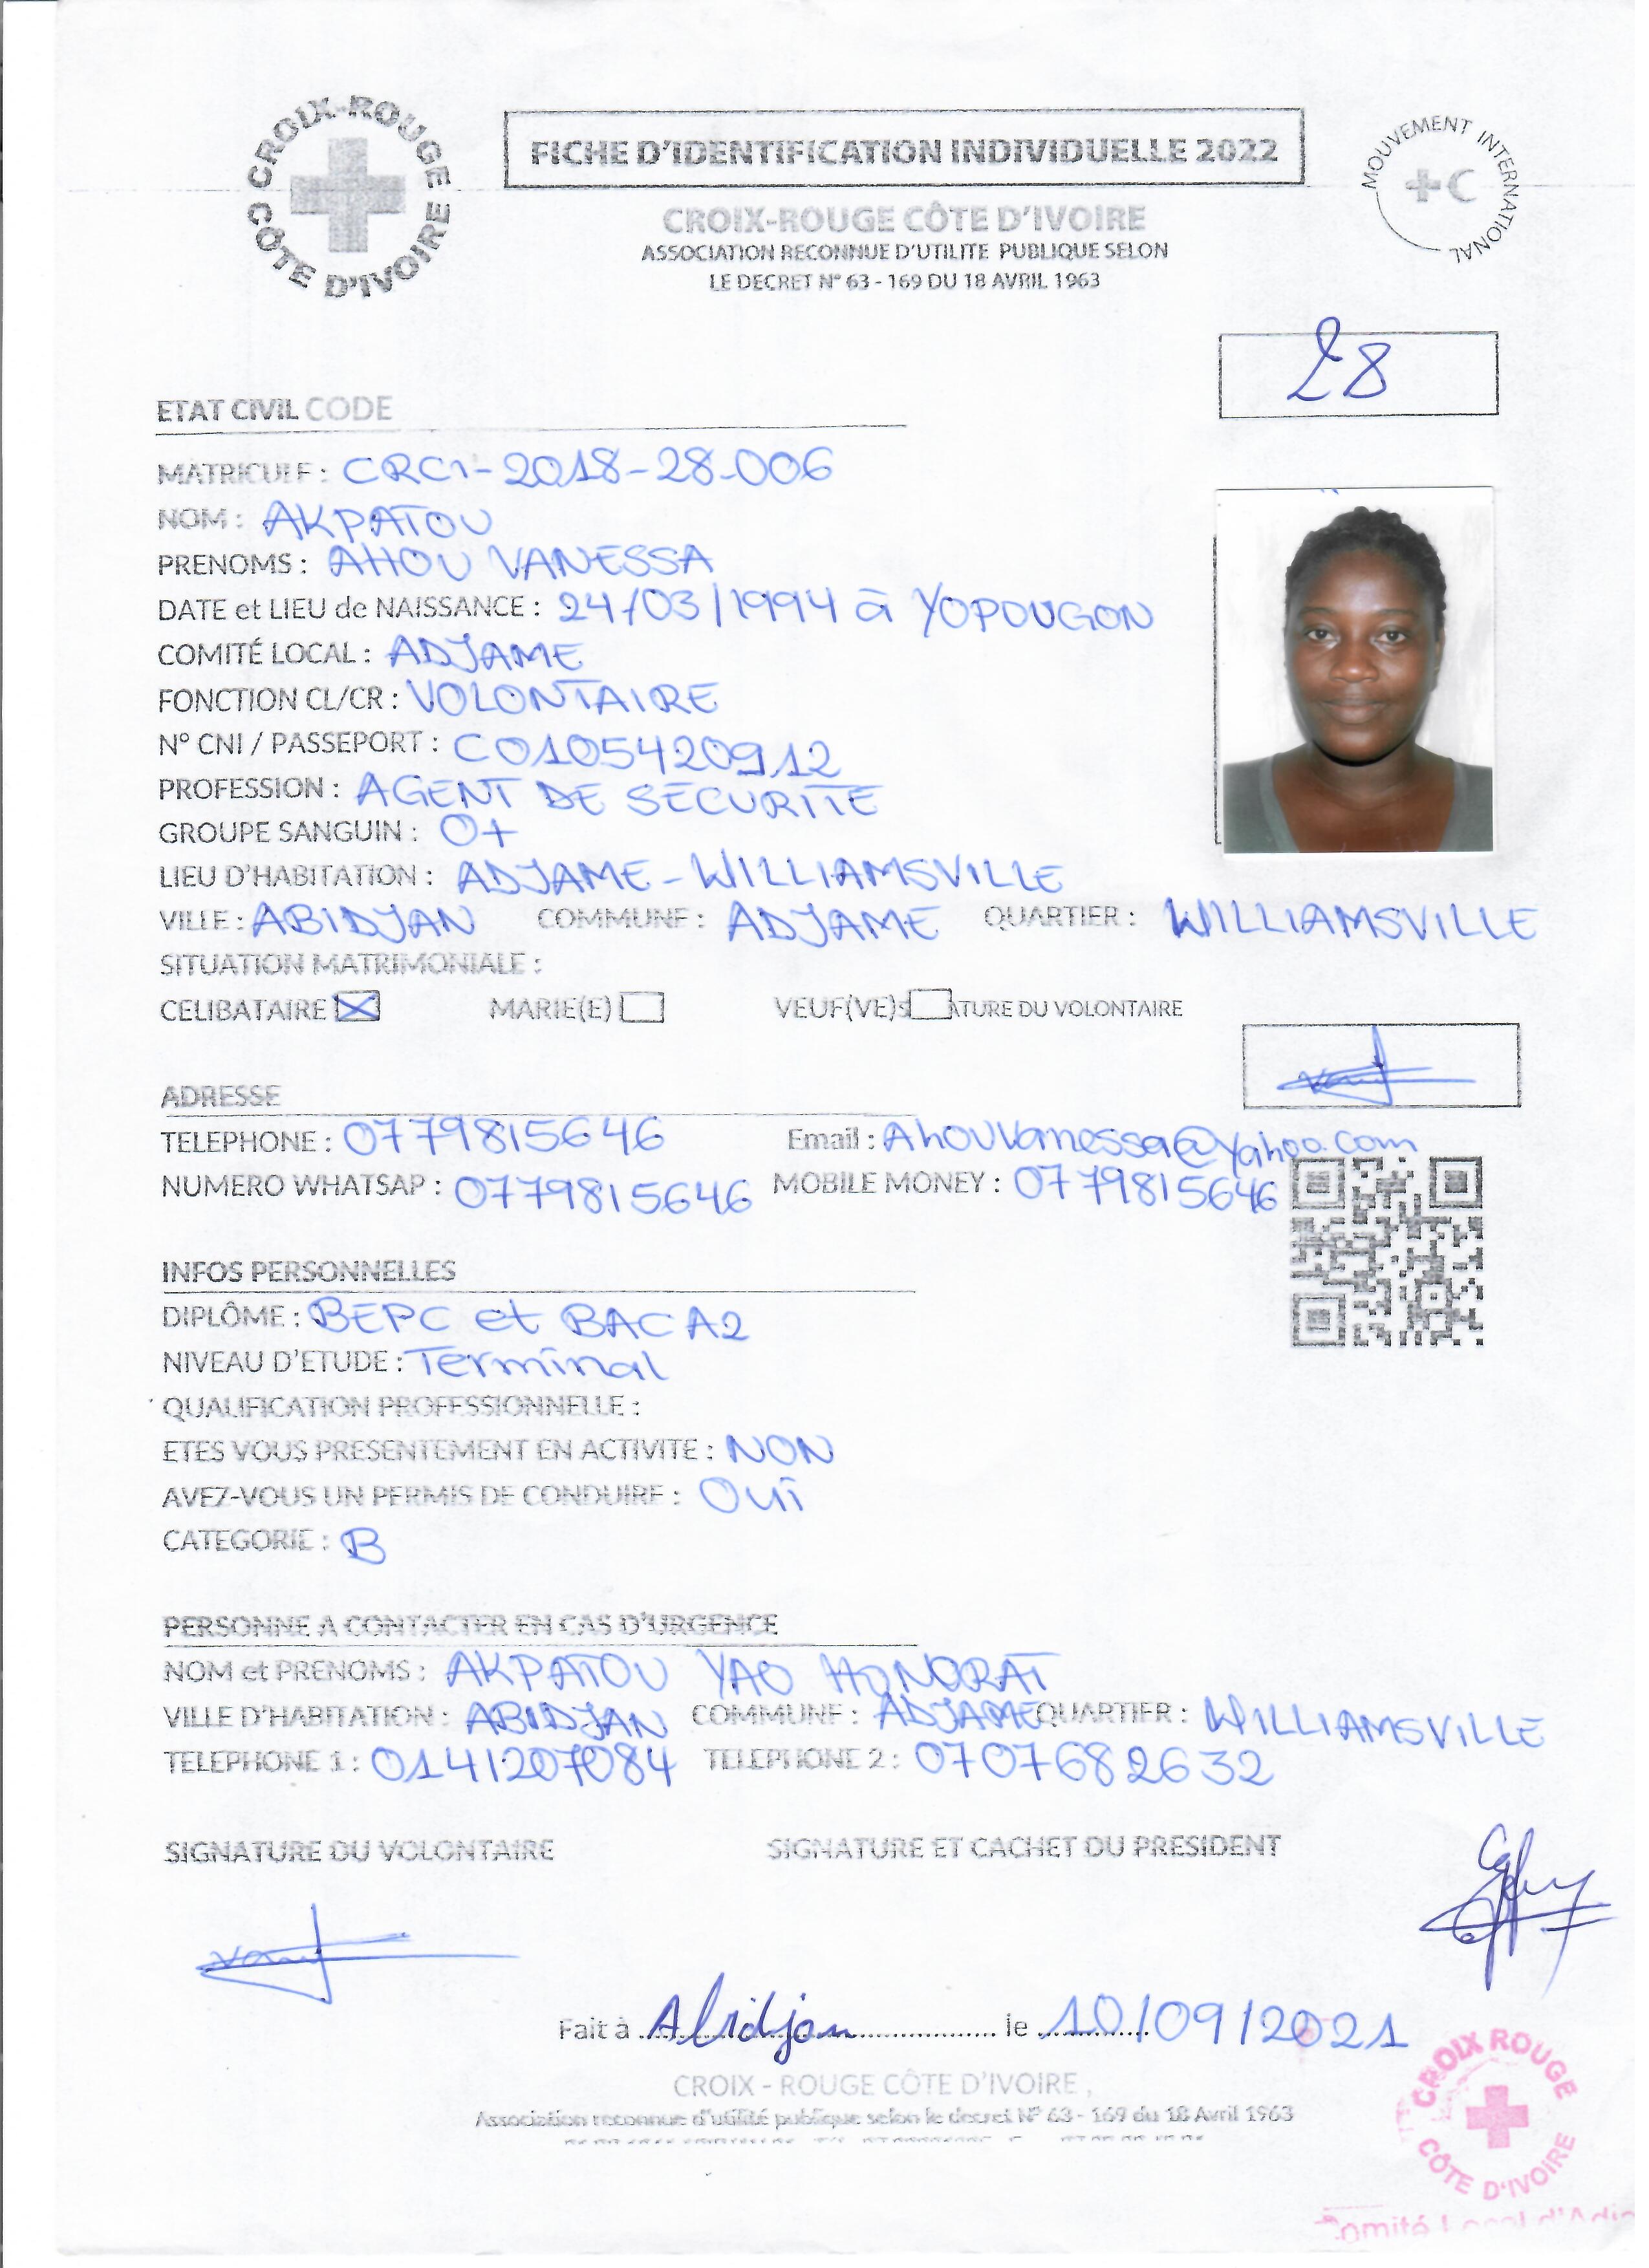 CROIX-ROUGE CÔTE D'IVOIRE
FICHE D'IDENTIFICATION INDIVIDUELLE 2022
MOUVEMENT INTERNATIONAL
CROIX-ROUGE CÔTE D'IVOIRE
ASSOCIATION RECONNUE D'UTILITE PUBLIQUE SELON
LE DECRET N° 63 - 169 DU 18 AVRIL 1963
28
ETAT CIVIL CODE
MATRICULE : CRCI-2018-28-006
NOM : AKPATOU
PRENOMS : AHOU VANESSA
DATE et LIEU de NAISSANCE : 24/03/1994 à YOPOUGON
COMITÉ LOCAL : ADJAME
FONCTION CL/CR : VOLONTAIRE
N° CNI / PASSEPORT : C0105420912
PROFESSION : AGENT DE SECURITE
GROUPE SANGUIN : O+
LIEU D'HABITATION : ADJAME-WILLIAMSVILLE
VILLE : ABIDJAN COMMUNE : ADJAME QUARTIER : WILLIAMSVILLE
SITUATION MATRIMONIALE :
CELIBATAIRE MARIE(E) VEUF(VE) ATURE DU VOLONTAIRE
ADRESSE
TELEPHONE : 0779815646 Email : Ahouvanessa@yahoo.com
NUMERO WHATSAP : 0779815646 MOBILE MONEY : 0779815646
INFOS PERSONNELLES
DIPLÔME : BEPC et BAC A2
NIVEAU D'ETUDE : Terminal
QUALIFICATION PROFESSIONNELLE :
ETES VOUS PRESENTEMENT EN ACTIVITE : NON
AVEZ-VOUS UN PERMIS DE CONDUIRE : OUI
CATEGORIE : B
PERSONNE A CONTACTER EN CAS D'URGENCE
NOM et PRENOMS : AKPATOU YAO HONORAT
VILLE D'HABITATION : ABIDJAN COMMUNE : ADJAME QUARTIER : WILLIAMSVILLE
TELEPHONE 1 : 0141207084 TELEPHONE 2 : 0707682632
SIGNATURE DU VOLONTAIRE SIGNATURE ET CACHET DU PRESIDENT
Fait à Abidjan le 10/09/2021
CROIX - ROUGE CÔTE D'IVOIRE
Association reconnue d'utilité publique selon le decret N° 63 - 169 du 18 Avril 1963
CROIX ROUGE CÔTE D'IVOIRE
Comité Local